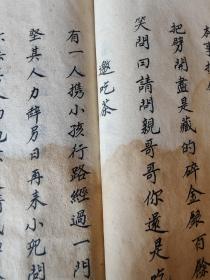 把劈開盡是藏的碎金銀百餘
笑問曰請問親哥哥你還是吃
邀吃茶
有一人携小孩行路經過一門
堅其人力辭另日再来小兜問